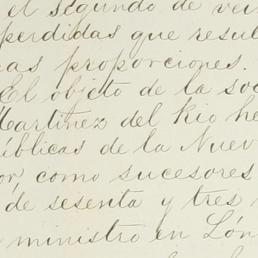 el segundo de vei
perdidas que resul
as proporciones.
El objeto de la soc
Martinez del Rio he
úblicas de la Nuev
or como sucesores
de sesenta y tres
ministro en Lón